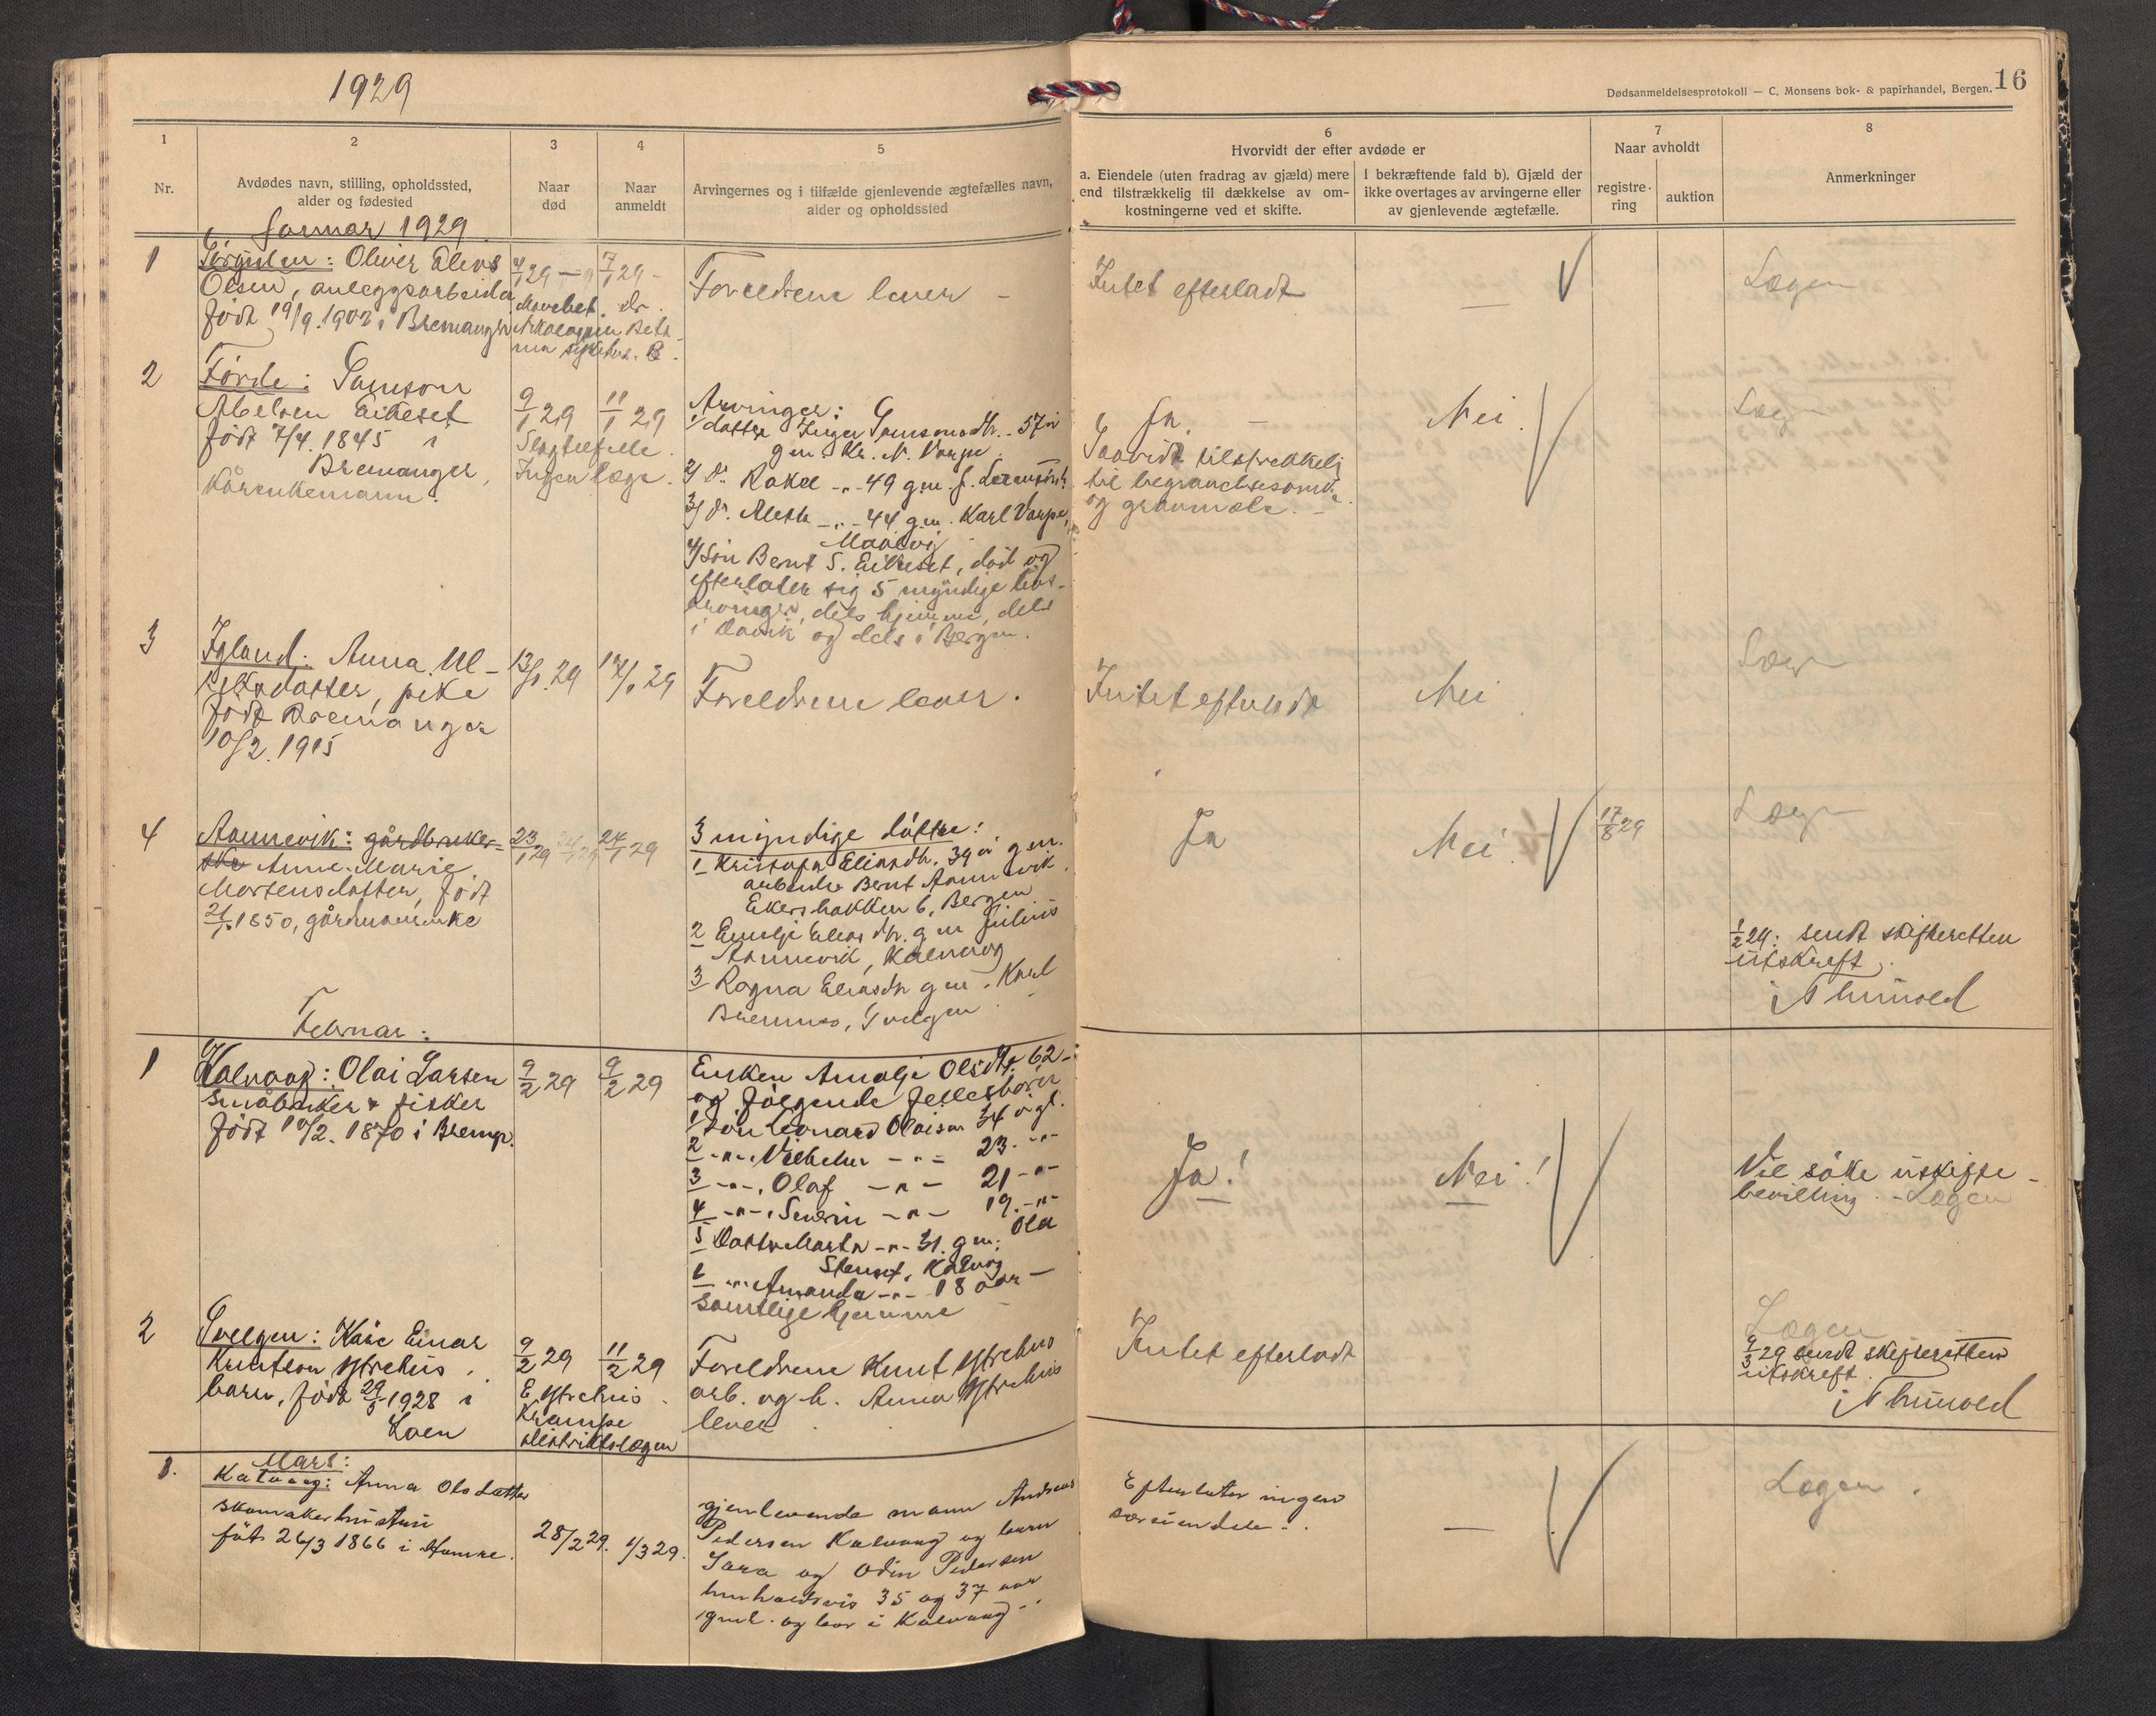 1929
16
Dødsanmeldelsesprotokoll — C. Monsens bok- & papirhandel, Bergen.
1
2
3
4
5
6
7
8
Nr.
Avdødes navn, stilling, opholdssted,
alder og fødested
Naar
død
Naar
anmeldt
Arvingernes og i tilfælde gjenlevende ægtefælles navn,
alder og opholdssted
Hvorvidt der efter avdøde er
a. Eiendele (uten fradrag av gjæld) mere
end tilstrækkelig til dækkelse av om-
kostningerne ved et skifte.
I bekræftende fald b). Gjæld der
ikke overtages av arvingerne eller
av gjenlevende ægtefælle.
Naar avholdt
registre-
ring
auktion
Anmerkninger
Januar 1929
1
Oliver Elias
Olsen, anleggsarbeider
født 19/9. 1902 i Bremanger
4/1 29 —
7/1 29 —
Foreldrene lever —
Intet efterladt
—
Lægen
2
Førde: Samson
Abelsen Eikeset
født 7/4. 1845 i
Bremanger,
Kårenkemann.
9/1 29
11/1 29
Slagtilfelle.
Ingen læge.
Arvinger:
1/ datter Inger Samsonsdtr. 57 år
gm. Kr. N. Varpe
2/ Dr. Rakel -"- 49 gm. J.
3/ Dr. Aleth -"- 44 gm. Karl Varpe,
4/ Søn Bernt S. Eikeset, død og
efterlater sig 5 myndige livs-
arvinger, dels hjemme, dels
i Davik og dels i Bergen.
Ja.
Saavidt tilstrekkelig
til begravelsesomk.
og gravmæle.
Nei.
Læg
3
Igland: Anna
datter, pike
født Bremanger
10/2. 1915
13/1. 29
14/1 29
Foreldrene lever.
Intet efterladt
Nei
Læg
4
Aannevik: gårdbruker-
ske Anne Marie
Mortensdatter, født
21/1. 1850, gårdmannenke
23/1 29
24/1 29
3 myndige døttre:
1 Kristofa Eliasdtr. 39 år gm.
arbeider Bernt Aannevik.
Ekersbakken 6, Bergen
2 Emilje Eliasdtr. gm Julius
Aannevik, Kalvaag
3 Ragna Eliasdtr gm. Karl
Bremnes, Svelgen
Ja
Nei.
17/8 29
Læg
1/2 29: sendt skifteretten
utskrift.
Februar:
1
Kalvaag: Olai Larsen
Småbruker & fisker
født 10/2. 1870 i Bremgr.
9/2 29
9/2 29
Enken Amalje Olsdtr. 62 —
og følgende fellesbørn
1 Søn Leonard Olaisen 34 år gl.
2 -"- Vilhelm -"- 23. -"-
3 -"-, Olaf -"- 21 -"-
4 -"-, Severin -"- 19. -"-
5 Datter Marta -"- 31. gm. Ola
Stenset, Kalvåg
6 -"- Amanda -"- 18 aar —
Samtlige hjemme
Ja!
Nei!
Vil søke uskifte-
bevilling. - Lægen
2
Svelgen: Kåre Einar
Knutson Ystrehus,
barn, født 29/5 1928 i
Loen
9/2 29
11/2 29
E. Ystrehus.
Krampe
distriktslægen
Foreldrene Knut Ystrehus
arb. og h. Anna Ystrehus
lever
Intet efterladt
Lægen
9/3 29 sendt skifteretten
utskrift.
Mars:
1.
Kalvaag: Anna Olsdatter
skomakerhustru
født 26/3 1866 i
28/2 29.
1/3 29.
gjenlevende mann Andreas
Pedersen Kalvaag og barn
Sara og Odin Pedersen
henholdsvis 35 og 37 aar
gml. og bor i Kalvaag.
Efterlater ingen
særeiendele.
—
Lægen.